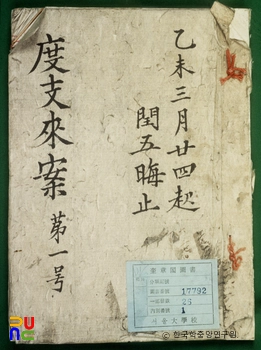 乙未三月廿四起
閏五晦止
度支來案 第一号
奎章閣圖書
17792
26
1
서울大學校
PUNG
© 한국학중앙연구원